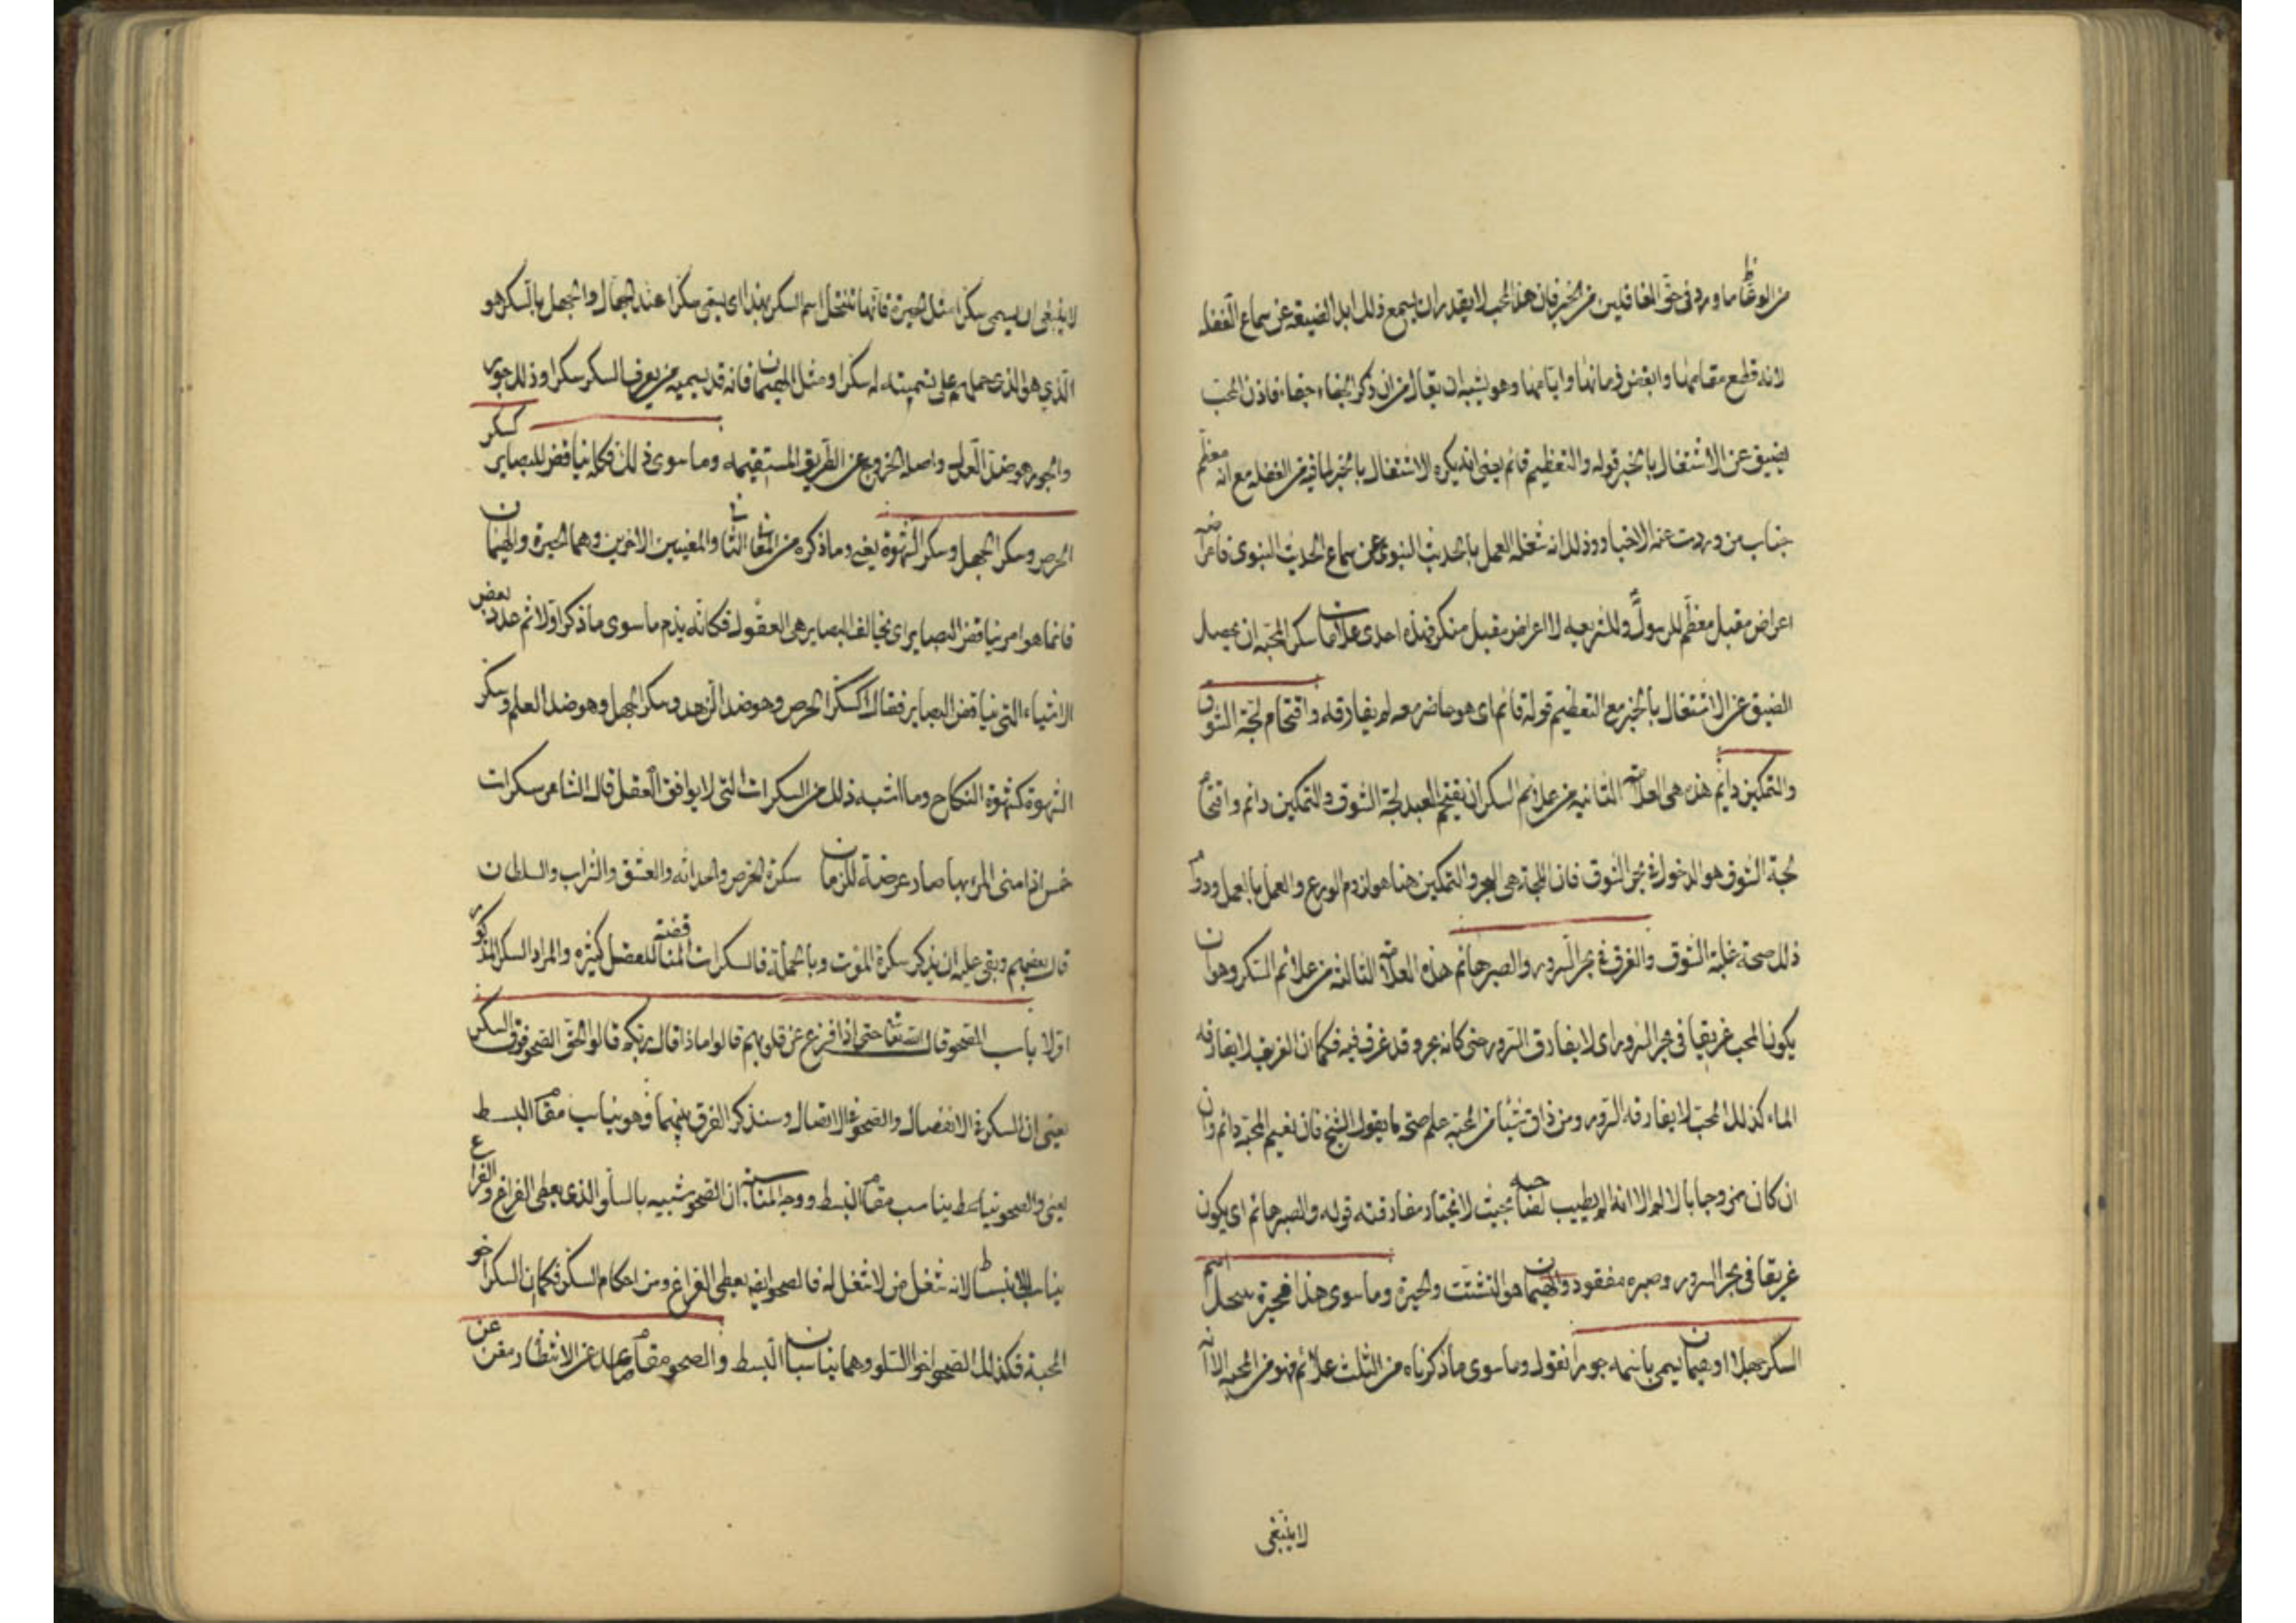 من الوعاظ ما ورد في حق الغافلين من الخبر فان هذا المحب لا يقدر ان يسمع ذلك ابدا لضيقه عن سماع الغفلة
لانه قطع مقامها وابغض زمانها وايامها وهو يشبه ان يقال من ان ذكر الجفاء جفاء فاذن المحب
يضيق عن الاشتغال بالخبر قوله والتعظيم قائم يعنى انه يكره الاشتغال بالخبر لما فيه من الغفلة مع انه معظم
جناب من وردت عنه الاخبار وذلك انه شغله العمل بالحديث النبوى عن سماع الحديث النبوى فاعراضه
اعراض مقبل معظم للرسول وللشريعه لا اعراض مقبل منكر فهذه احدى علامات سكر المحبة ان يحصل
الضيق عن الاشتغال بالخبر مع التعظيم قوله قائم اى هو حاضر معه لم يفارقه واقتحام لجة الشوق
والتمكين دايم هذه هى العلامة الثانيه من علائم السكر ان يقتحم العبد لجة الشوق والتمكين دائم واقتحام
لجة الشوق هو الدخول فى بحر الشوق فان اللجة هى البحر والتمكين هنا هو لزوم الورع والعمل بالعمل ودوام
ذلك صحة غلبة الشوق والغرق فى بحر السرور والصبر هائم هذه العلامة الثالثه من علائم السكر وهو ان
يكون المحب غريقا فى بحر السرور اى لا يفارق السرور حتى كانه بحر وقد غرق فيه فكما ان الغريق لا يفارقه
الماء كذلك المحب لا يفارقه السرور ومن ذاق شيئا من المحبه علم صحة ما يقول الشيخ فان نعيم المحبة دائم وان
ان كان ممزوجا بالالم الا انه الم يطيب لصاحبه بحيث لا يختار مفارقته قوله والصبر هائم اى يكون
غريقا فى بحر السرور وصبره مفقود والهيمان هو التشتت والحيرة وما سوى هذا فحيرة تنحل اسم
السكر جهلا او هيمان يسمى باسمه جورا نقول وما سوى ما ذكرناه من الثلث علائم فهو من المحبه الا انه
لا ينبغى
لا ينبغى ان يسمى سكرا مثل الحيرة فانها تنتحل اسم السكر بهذا اى يبقى سكرا عند الجهال والجهل بالسكر هو
الذي هو الذى حملهم على تسميته له سكرا ومثل الهيمان فانه قد يسميه من يعرف السكر سكرا وذلك جور
والجور هو ضد العدل واصله الخروج عن الطريق المستقيمه وما سوى ذلك فكله يناقض البصاير كسكر
الحرص وسكر الجهل وسكر الشهوة يعنى وما ذكره من المقام الثانى والمعنيين الاخرين وهما الحيرة والهيمان
فانما هو امر يناقض البصاير اى يخالف البصاير هى العقول فكانه يذم ما سوى ما ذكر اولا ثم عدد بعض
الاشياء التى يناقض البصاير فقال كسكر الحرص وهو ضد الزهد وسكر الجهل وهو ضد العلم وسكر
الشهوة كشهوة النكاح وما اشبه ذلك من السكرات التى لا يوافق العقل قال الشاعر سكرات
خمس اذا منى المرء بها صار عرضة للزمان سكرة الحرص والحداثه والعشق والشراب والسلطان
قال بعضهم وبقى عليه ان يذكر سكرة الموت وبالجملة فالسكرات المناقضة للعقل كثيره والمراد السكر المذكور
اولا باب الصحو قال الله تعا حتى اذا فزع عن قلوبهم قالوا ماذا قال ربكم قالوا الحق الصحو فوق السكر
يعنى ان السكر فى الانفصال والصحو فى الاتصال وسنذكر الفرق بينهما وهو يناسب مقام البسط
يعنى والصحو يناسب مقام البسط ووجه المناسبة ان الصحو شبيه بالسلو الذى يعطى الفراغ والفراغ
يناسب الانبساط لانه شغل من لا شغل له فالصحو ايضا يعطى الفراغ من احكام السكر فكما ان السكر اخو
المحبة فكذلك الصحو اخو السلو وهما يناسبان البسط والصحو مقام صاعد عن الانتظار مغن عن